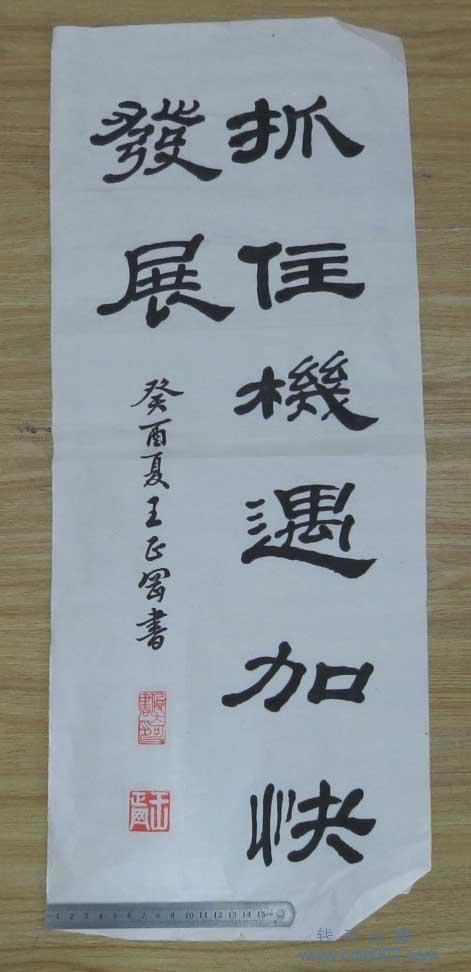 抓住機遇加快
發展
癸酉夏王正罡書
1 2 3 4 5 6 7 8 9 10 11 12 13 14 15
www.coin007.com